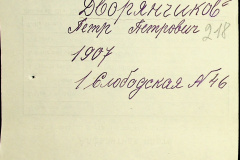 Дворянчиков
Петр Петрович 218
1907
1 Слободская № 46